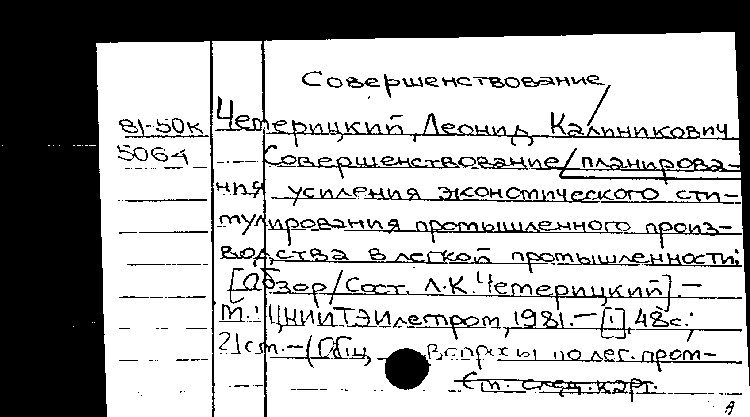 Совершенствование
81-50к Четерицкий, Леонид Калиникович
5064 Совершенствование планирова-
ния усиления экономического сти-
мулирования промышленного произ-
водства в легкой промышленности:
[Обзор/Сост. Л.К.Четерицкий].—
М.: ЦНИИТЭИлегпром, 1981.—[1], 48с.;
21см.—(Общ. вопросы по лег. пром-
См. след. карт.